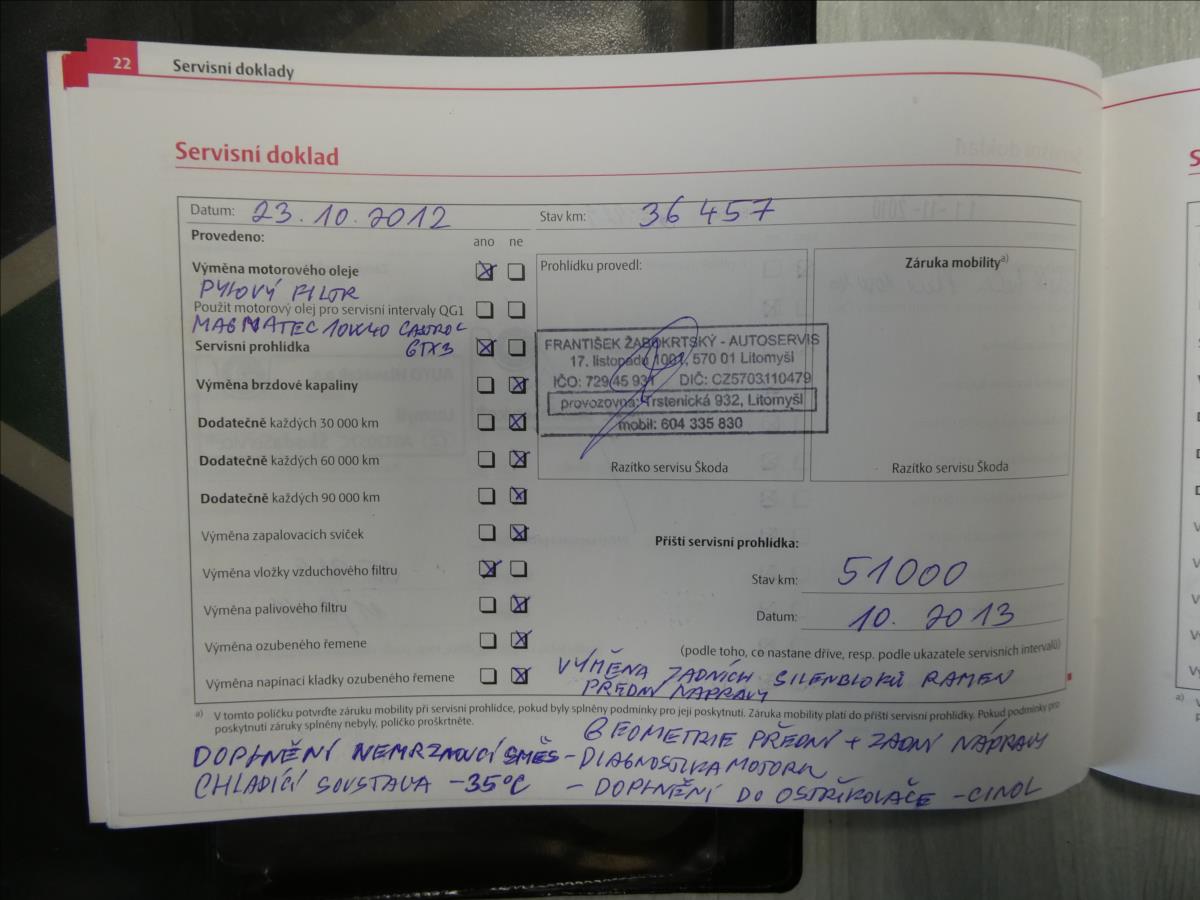 22 Servisní doklady
Servisní doklad
Datum: 23.10.2012 Stav km: 36 457
Provedeno: ano ne
Prohlídku provedl: Záruka mobility a)
Výměna motorového oleje
PYLOVÝ FILTR
Použit motorový olej pro servisní intervaly QG1
MAGNATEC 10W40 CASTROL
Servisní prohlídka GTX3
Výměna brzdové kapaliny
Dodatečně každých 30 000 km
Dodatečně každých 60 000 km
Dodatečně každých 90 000 km
Výměna zapalovacích svíček
Výměna vložky vzduchového filtru
Výměna palivového filtru
Výměna ozubeného řemene
Výměna napínací kladky ozubeného řemene
FRANTIŠEK ŽABOKRTSKÝ - AUTOSERVIS
17. listopadu 1001, 570 01 Litomyšl
IČO: 729 45 931 DIČ: CZ5703110479
provozovna: Trstenická 932, Litomyšl
mobil: 604 335 830
Razítko servisu Škoda Razítko servisu Škoda
Příští servisní prohlídka:
Stav km: 51000
Datum: 10. 2013
(podle toho, co nastane dříve, resp. podle ukazatele servisních intervalů)
VÝMĚNA ZADNÍCH SILENBLOKŮ RAMEN
PŘEDNÍ NÁPRAVY
a) V tomto políčku potvrďte záruku mobility při servisní prohlídce, pokud byly splněny podmínky pro její poskytnutí. Záruka mobility platí do příští servisní prohlídky. Pokud podmínky pro
poskytnutí záruky splněny nebyly, políčko proškrtněte.
GEOMETRIE PŘEDNÍ + ZADNÍ NÁPRAVY
DOPLNĚNÍ NEMRZNOUCÍ SMĚS - DIAGNOSTIKA MOTORU
CHLADÍCÍ SOUSTAVA -35°C - DOPLNĚNÍ DO OSTŘIKOVAČE - CINOL